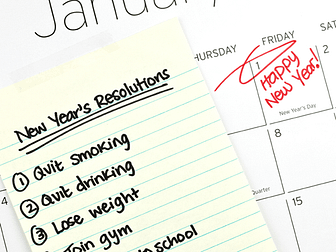 January
THURSDAY
FRIDAY
1
2
Happy
New Year!
New Year's Day
8
Quarter
15
New Year's Resolutions
① Quit smoking
② Quit drinking
③ Lose weight
Join gym
school